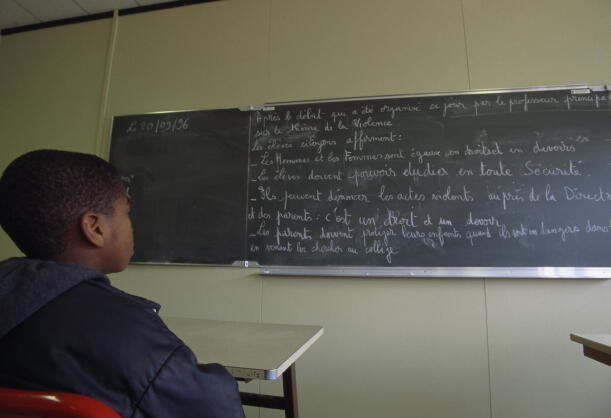 Le 20/09/96
Après le débat qui a été organisé ce jour par le professeur principal
sur le thème de la Violence
Les élèves citoyens affirment:
_ Les Hommes et les Femmes sont égaux en droits et en devoirs
_ Les élèves doivent pouvoir étudier en toute Sécurité
_ Ils peuvent dénoncer les actes violents auprès de la Direct
et des parents : c'est un droit et un devoir
_ Les parents doivent protéger leurs enfants quand ils sont en dangers dans
en venant les chercher au collège